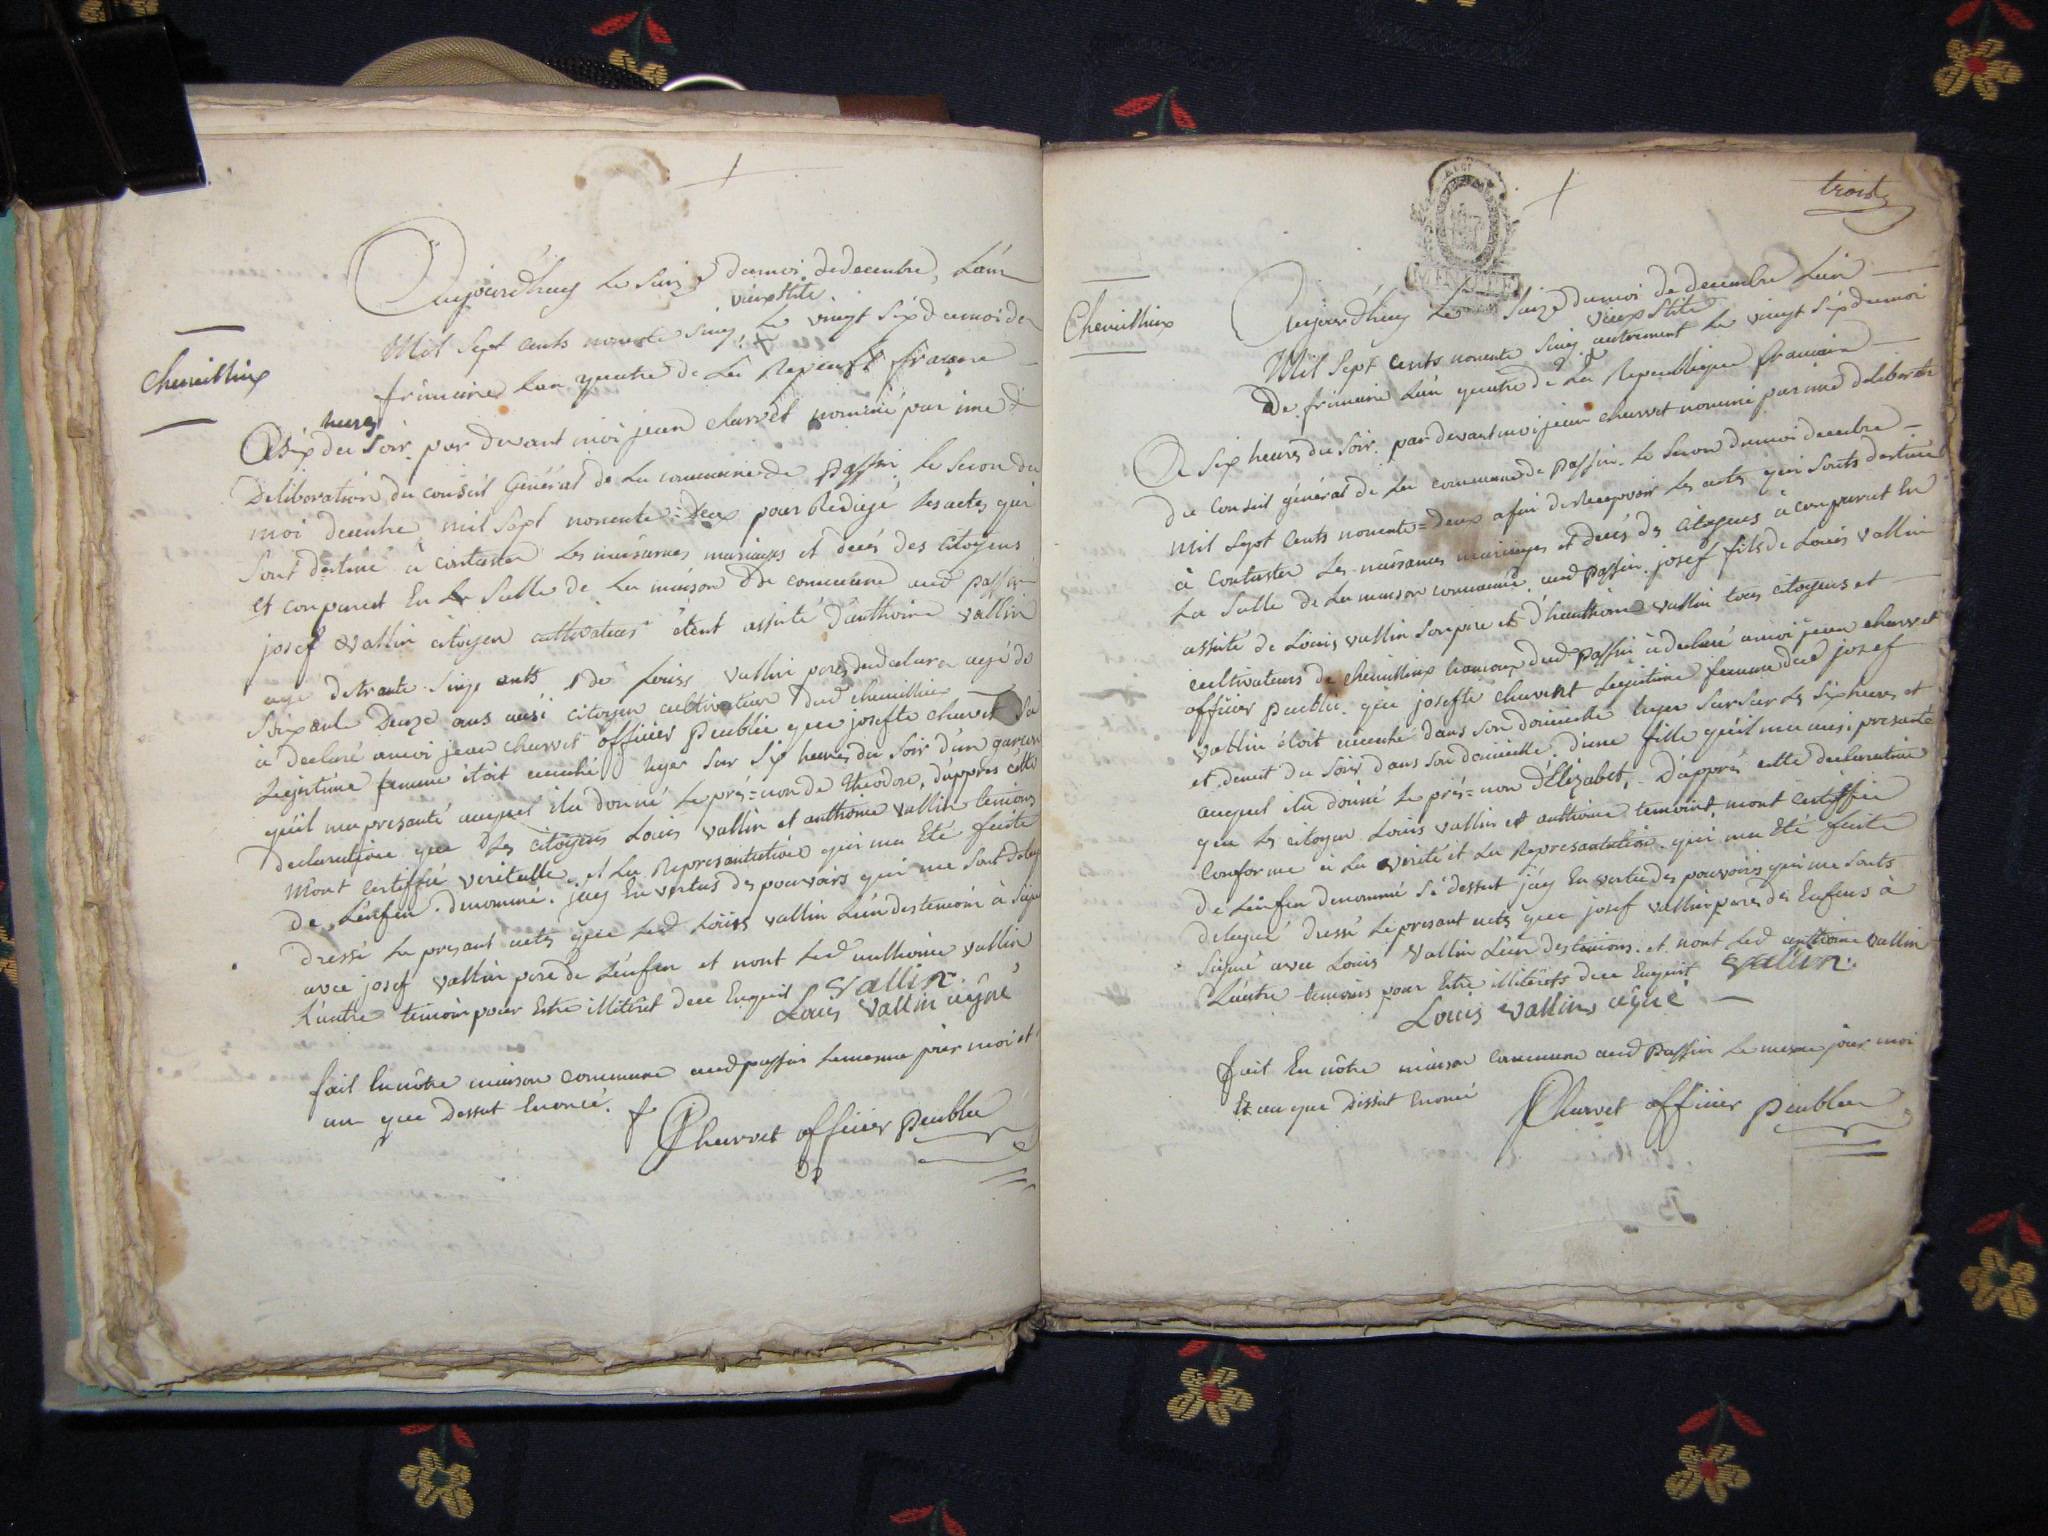 Aujourdhuy Le Seize dumoi dedecembre, L'an
vieux Stile
Mil Sept cents nonente Sinq, Le vingt Six dumoi de
frimaire Lan quatre de La Repub française
chemillieux
heures
A six du Soir. par devant moi jean charvet nommé par une
Deliberation du conseil Général de La commune de Passin Le Secon du
moi decenbre mil Sept nonente=deux pour Rediege les actes qui
Sont destiné à constater Les naisances mariages et decés des citoyens
et conparut En La Salle de La maison de commune aud passin
josef vallin citoyen cultivateur êtent assisté d'anthoine vallin
agé detrante Sinq ants de Louis vallin pere dud age de
Soixante Deuze ans ausi citoyen cultivateur dud chemillieux
à declaré amoi jean charvet officier Peublic que josefte charvet Sa
Legistime femme étoit acuché hyer Sur Six heures du Soir d'un garcon
qu'il ma presanté auquel ila donné Le pré=non de théodore, d'appres cette
declaration que Les citoyens Louis vallin et anthoine vallin temions
m'ont certiffié veritable, et La Represantation qui ma Eté faite
de L'enfen denommé. j'ay En vertus des pouvoirs qui me Sont deleg
dressé Le presant acte que Led Louis vallin L'un des temoin à Signé
avec josef vallin pere de L'enfen et nont Led anthoine vallin
L'autre temoin pour Estre illitéret dee Enquit vallin
Louis vallin aigné
fait En nôtre maison commune aud passin Lememe jour moi et
an que Dessut Enoncé.
Charvet officier Peublic
trois
Chemillieux
Aujourdhuy Le Seize dumoi de decembre L'an
vieux Stile
Mil Sept cents nonente Sinq autrement Le vingt Six dumoi
De frimaire L'an quatre de La Republique francaise
A Six heures du Soir. par devant moi jean charvet nommé par une deliberation
du Conseil général de La commune de Passin. Le Secon dumoi decenbre
mil Sept Cents nonente=deux afin de Recepvoir Les actes qui Sonts destiné
à Constater Les naisances mariages et decés des Citoyens à conparut En
La Salle de La maison commune aud Passin. josef fils de Louis vallin
assisté de Louis vallin Son pere et d'hanthoine vallin tous citoyens et
cultivateurs de chemillieux hameaux dud Passin à declaré amoi jean charvet
officier Peublic. que josefte charvet Legistime femme dud josef
vallin étoit acuché dans Son domicille hyer Sur Les Six heures et
et demit du Soir dans Son domicille. d'une fille qu'il ma ausi presanté
auquel ila donné Le pré=non d'Elizabet, D'apprés cette declaration
que Les citoyen Louis vallin et anthoine temoint, mont certiffié
Conforme à La verité et La Represantation. qui ma Eté faite
de L'enfen denommé Si dessut j'ay En vertu des pouvoirs qui me Sonts
delegué dressé Le presant acte que josef vallin pere des Enfens à
Signé avec Louis vallin L'un des temions. et nont Led anthoine vallin
L'autre temions pour Estre illitérets dee Enquit vallin
Louis vallin aigné
fait En nôtre maison Commune aud Passin Le mesme jour moi
Et an que Dissut Enoncé
Charvet officier Peublic